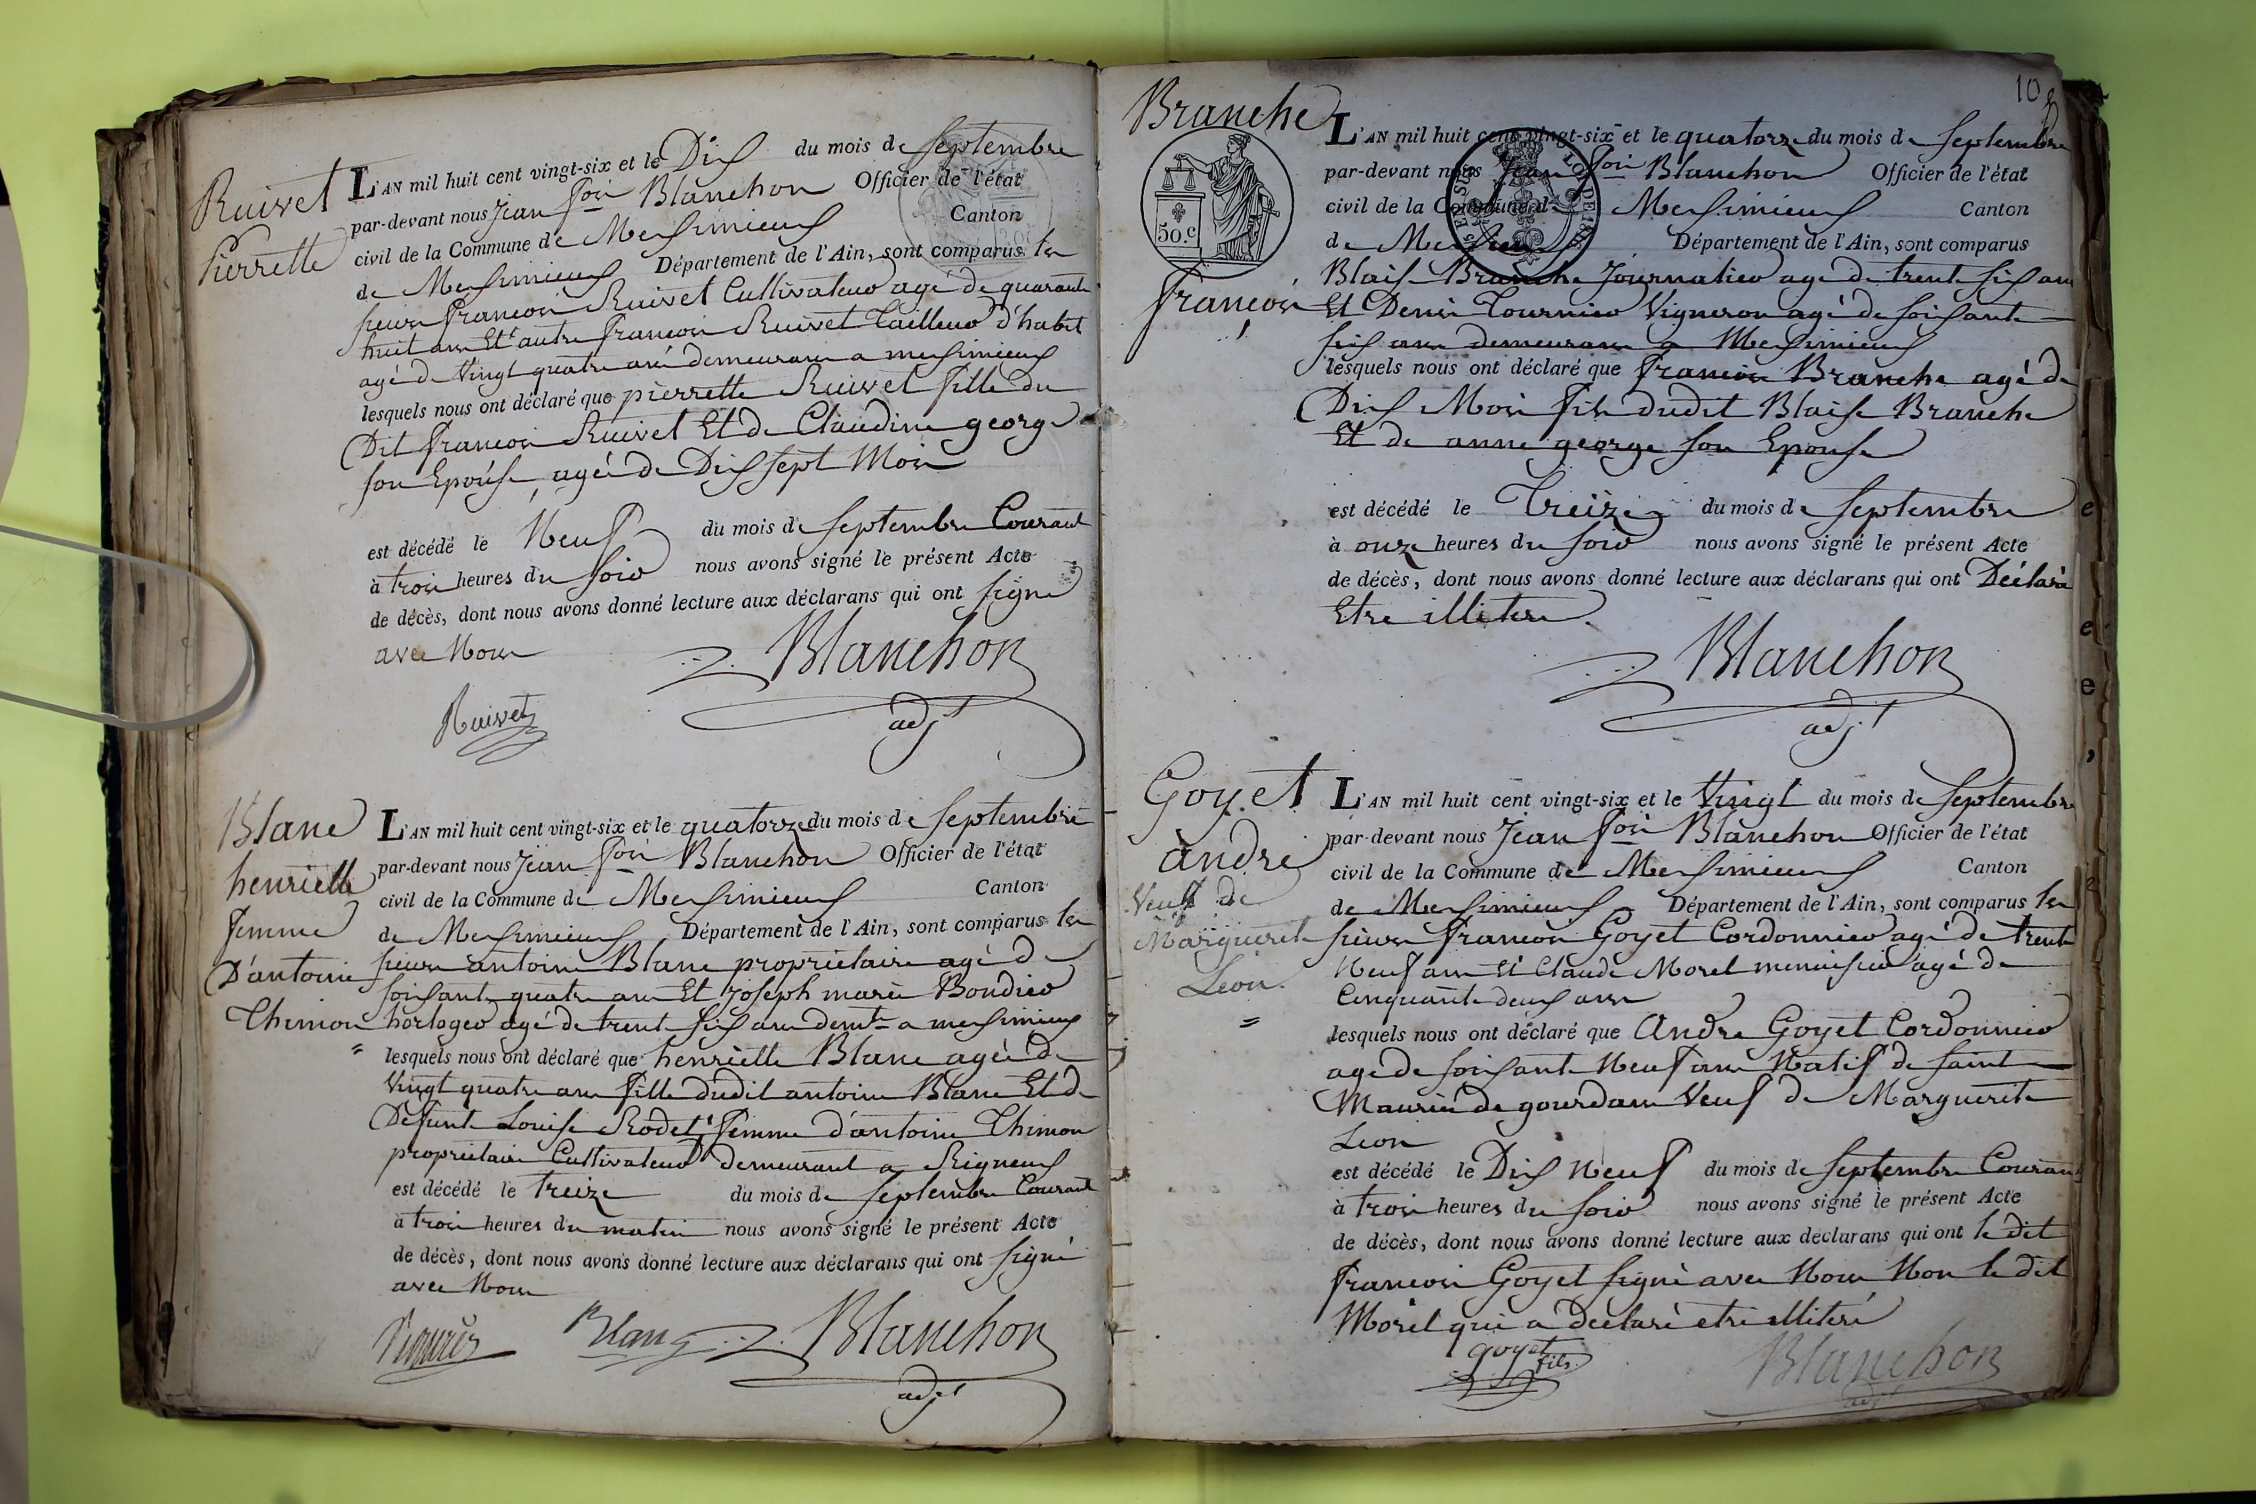 Ruivet
Pierrette
L'AN mil huit cent vingt-six et le Dix du mois de Septembre
par-devant nous Jean fois Blanchon Officier de l'état
civil de la Commune de Messimieux Canton
de Messimieux Département de l'Ain, sont comparus les
sieurs francois Ruivet Cultivateur agé de quarante
huit ans Et autre francois Ruivet Tailleur d'habit
agé de Vingt quatre ans demeurans a messimieux
lesquels nous ont déclaré que pierrette Ruivet fille du
Dit francois Ruivet Et de Claudine george
son Epouse, agée de Dix sept Mois
est décédé le Neuf du mois de Septembre Courant
à trois heures du soir nous avons signé le présent Acte
de décès, dont nous avons donné lecture aux déclarans qui ont signé
avec Nous
Blanchon
Ruivet
adjt
Blanc
henriette
femme
D'antoine
Thimon
L'AN mil huit cent vingt-six et le quatorze du mois de Septembre
par-devant nous Jean fois Blanchon Officier de l'état
civil de la Commune de Messimieux Canton
de Messimieux Département de l'Ain, sont comparus les
sieurs antoine Blanc propriétaire agé de
soixante quatre ans Et joseph marie Bondier
horloger agé de trente six ans demts a messimieux
lesquels nous ont déclaré que henriette Blanc agée de
Vingt quatre ans fille dudit antoine Blanc Et de
Defunte Louise Rodet femme d'antoine Thimon
propriétaire Cultivateur demeurant a Rigneux
est décédé le treize du mois de Septembre Courant
à trois heures du matin nous avons signé le présent Acte
de décès, dont nous avons donné lecture aux déclarans qui ont signé
avec Nous
Blanc Blanchon
adjt
10
Branche
50.c
francois
L'AN mil huit cent vingt-six et le quatorze du mois de Septembre
par-devant nous Jean fois Blanchon Officier de l'état
civil de la Commune de Messimieux Canton
de Messimieux Département de l'Ain, sont comparus
LOI DE 1816
Blaise Branche Journalier agé de trente six ans
Et Denis Tournier Vigneron agé de soixante
six ans demeurans a Messimieux
lesquels nous ont déclaré que francois Branche agé de
Dix Mois fils dudit Blaise Branche
Et de anne george son Epouse
est décédé le Treize du mois de Septembre
à onze heures du soir nous avons signé le présent Acte
de décès, dont nous avons donné lecture aux déclarans qui ont Déclaré
Etre illitere.
Blanchon
adjt
Goyet
andre
Veuf de
Marguerite
Leon.
L'AN mil huit cent vingt-six et le Vingt du mois de Septembre
par-devant nous Jean fois Blanchon Officier de l'état
civil de la Commune de Messimieux Canton
de Messimieux Département de l'Ain, sont comparus les
sieurs francois Goyet Cordonnier agé de trente
Neuf ans Et Claude Morel menuisier agé de
Cinquante deux ans
lesquels nous ont déclaré que Andre Goyet Cordonnier
agé de soixante Neuf ans Natif de saint
Maurice de gourdans Veuf de Marguerite
Leon
est décédé le Dix Neuf du mois de Septembre Courant
à trois heures du soir nous avons signé le présent Acte
de décès, dont nous avons donné lecture aux déclarans qui ont le dit
francois Goyet signé avec Nous Non le dit
Morel qui a déclaré etre illiteré
goyet
fils
Blanchon
adjt